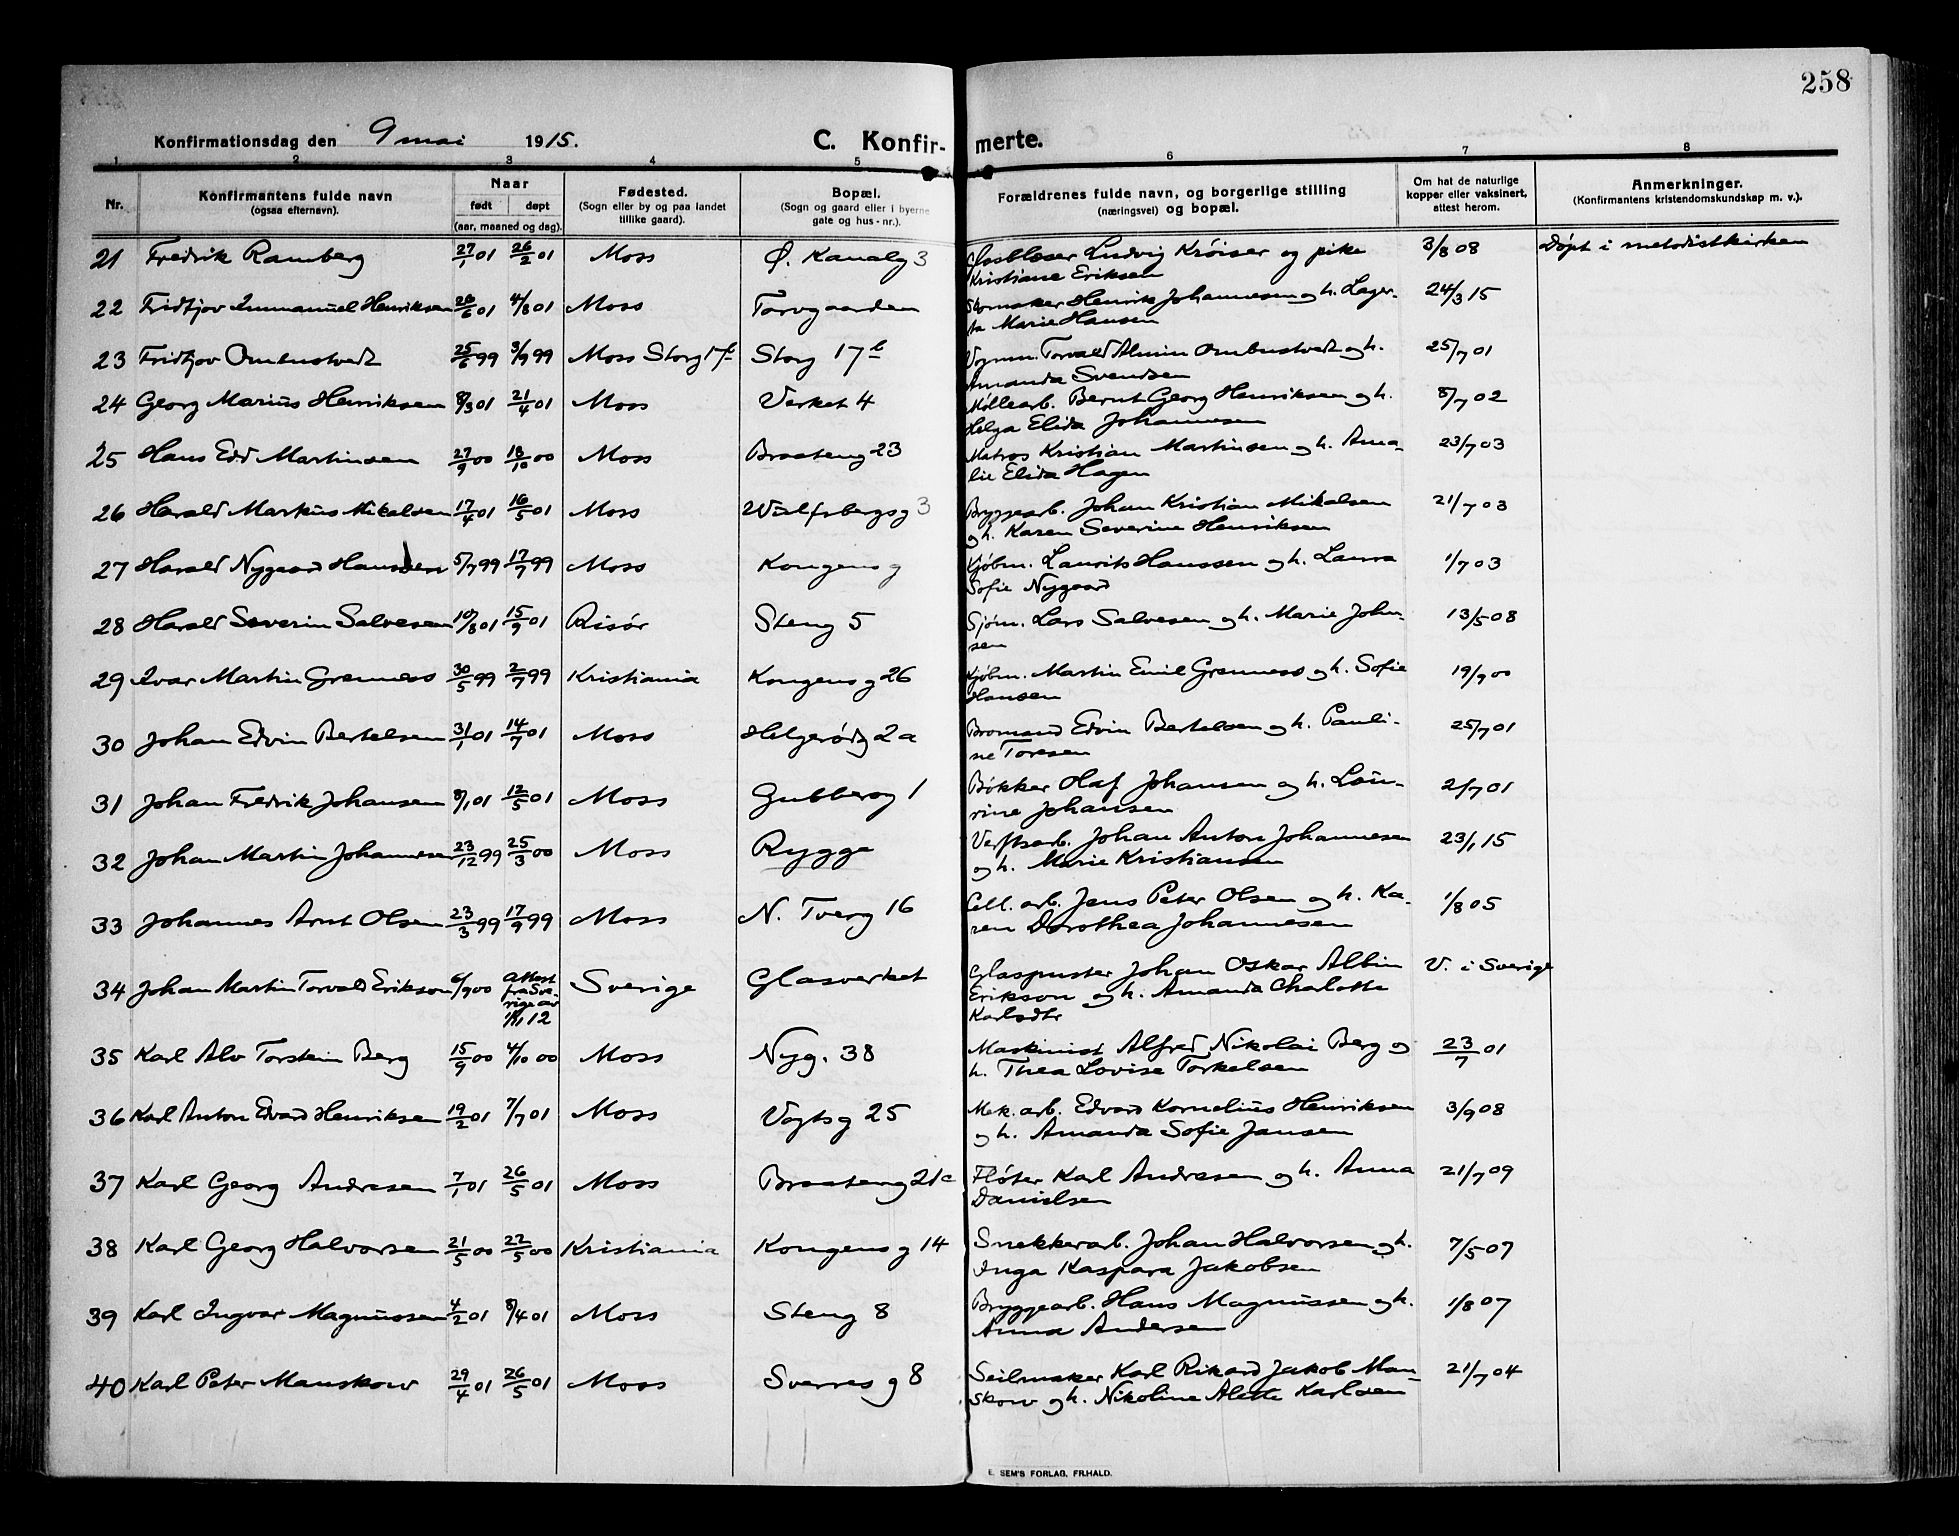 258
Konfirmationsdag den 9 mai 1915.
C. Konfir- merte.
1 2 3 4 5 6 7 8
Nr.
Konfirmantens fulde navn
(ogsaa efternavn).
Naar
født døpt
(aar, maaned og dag).
Fødested.
(Sogn eller by og paa landet
tillike gaard).
Bopæl.
(Sogn og gaard eller i byerne
gate og hus-nr.).
Forældrenes fulde navn, og borgerlige stilling
(næringsvei) og bopæl.
Om hat de naturlige
kopper eller vaksinert,
attest herom.
Anmerkninger.
(Konfirmantens kristendomskundskap m. v.).
21 Fredrik Ramberg 27/1 01 26/2 01 Moss Ø. Kanalg 3 Glasblæser Ludvig Krøiser og pike 3/8 08 Døpt i metodistkirken
Kristiane Eriksen
22 Fridtjov Immanuel Henriksen 26/6 01 4/8 01 Moss Torvgaarden Skomaker Henrik Johannesen og h. Lager- 24/3 15
ta Marie Hansen
23 Fridtjov Ombustvedt 25/6 99 3/9 99 Moss Storg 17b Storg 17b Vognm. Torvald Almin Ombustvedt og h. 25/7 01
Amanda Svendsen
24 Georg Marius Henriksen 8/3 01 21/4 01 Moss Verket 4 Møllearb. Bernt Georg Henriksen og h. 8/7 02
Helga Elida Johannesen
25 Hans Edv Martinsen 27/9 00 18/10 00 Moss Braateng 23 Matros Kristian Martinsen og h. Ama- 23/7 03
lie Elida Hagen
26 Harald Markus Mikalsen 17/4 01 16/5 01 Moss Wulfsbergsg 3 Bryggearb. Johan Kristian Mikalsen 21/7 03
og h. Karen Severine Henriksen
27 Harald Nygaard Hanssen 5/7 99 17/7 99 Moss Kongens g Kjøbm. Laurits Hanssen og h. Laura 1/7 03
Sofie Nygaard
28 Harald Severin Salvesen 10/8 01 15/9 01 Risør Steng 5 Sjøm. Lars Salvesen og h. Marie John- 13/5 08
sen
29 Ivar Martin Grenness 30/5 99 2/7 99 Kristiania Kongens g 26 Kjøbm. Martin Emil Grenness og h. Sofie 19/9 00
Hansen
30 Johan Edvin Bertelsen 31/1 01 14/7 01 Moss Helgerødg 2a Bromand Edvin Bertelsen og h. Pauli- 25/7 01
ne Toresen
31 Johan Fredrik Johansen 8/1 01 12/5 01 Moss Gubberog 1 Bøkker Olaf Johansen og h. Lau- 2/7 01
rine Johansen
32 Johan Martin Johannesen 23/12 99 25/3 00 Moss Rygge Verftsarb. Johan Anton Johannesen 23/1 15
og h. Marie Kristiansen
33 Johannes Arnt Olsen 23/3 99 17/9 99 Moss N. Tverg 16 Cell. arb. Jens Peter Olsen og h. Ka- 1/8 05
ren Dorothea Johannesen
34 Johan Martin Torvald Erikson 6/9 00 Attest Sverige Glasverket Glaspuster Johan Oskar Albin V. i Sverige
fra Sve-
rige av
12
Erikson og h. Amanda Charlotte
Karlsdtr
35 Karl Alv Torstein Berg 15/9 00 4/10 00 Moss Nyg. 38 Maskinist Alfred Nikolai Berg og 23/7 01
h. Thea Lovise Torkelsen
36 Karl Anton Edvard Henriksen 19/2 01 7/7 01 Moss Vogtsg 25 Mek. arb. Edvard Kornelius Henriksen 3/9 08
og h. Amanda Sofie Jansen
37 Karl Georg Andresen 7/1 01 26/5 01 Moss Braateng 21c Fløter Karl Andresen og h. Anna 21/7 09
Danielsen
38 Karl Georg Halvorsen 21/5 00 22/5 00 Kristiania Kongens g 14 Snekkerarb. Johan Halvorsen og h. 7/5 07
Inga Kaspara Jakobsen
39 Karl Ingvar Magnussen 4/2 01 8/4 01 Moss Steng 8 Bryggearb. Hans Magnussen og h. 1/8 07
Anna Andersen
40 Karl Peter Manskow 29/4 01 26/5 01 Moss Sverres g 8 Seilmaker Karl Rikard Jakob Man- 21/7 04
skow og h. Nikoline Alette Karlsen
E. SEM'S FORLAG, FR.HALD.